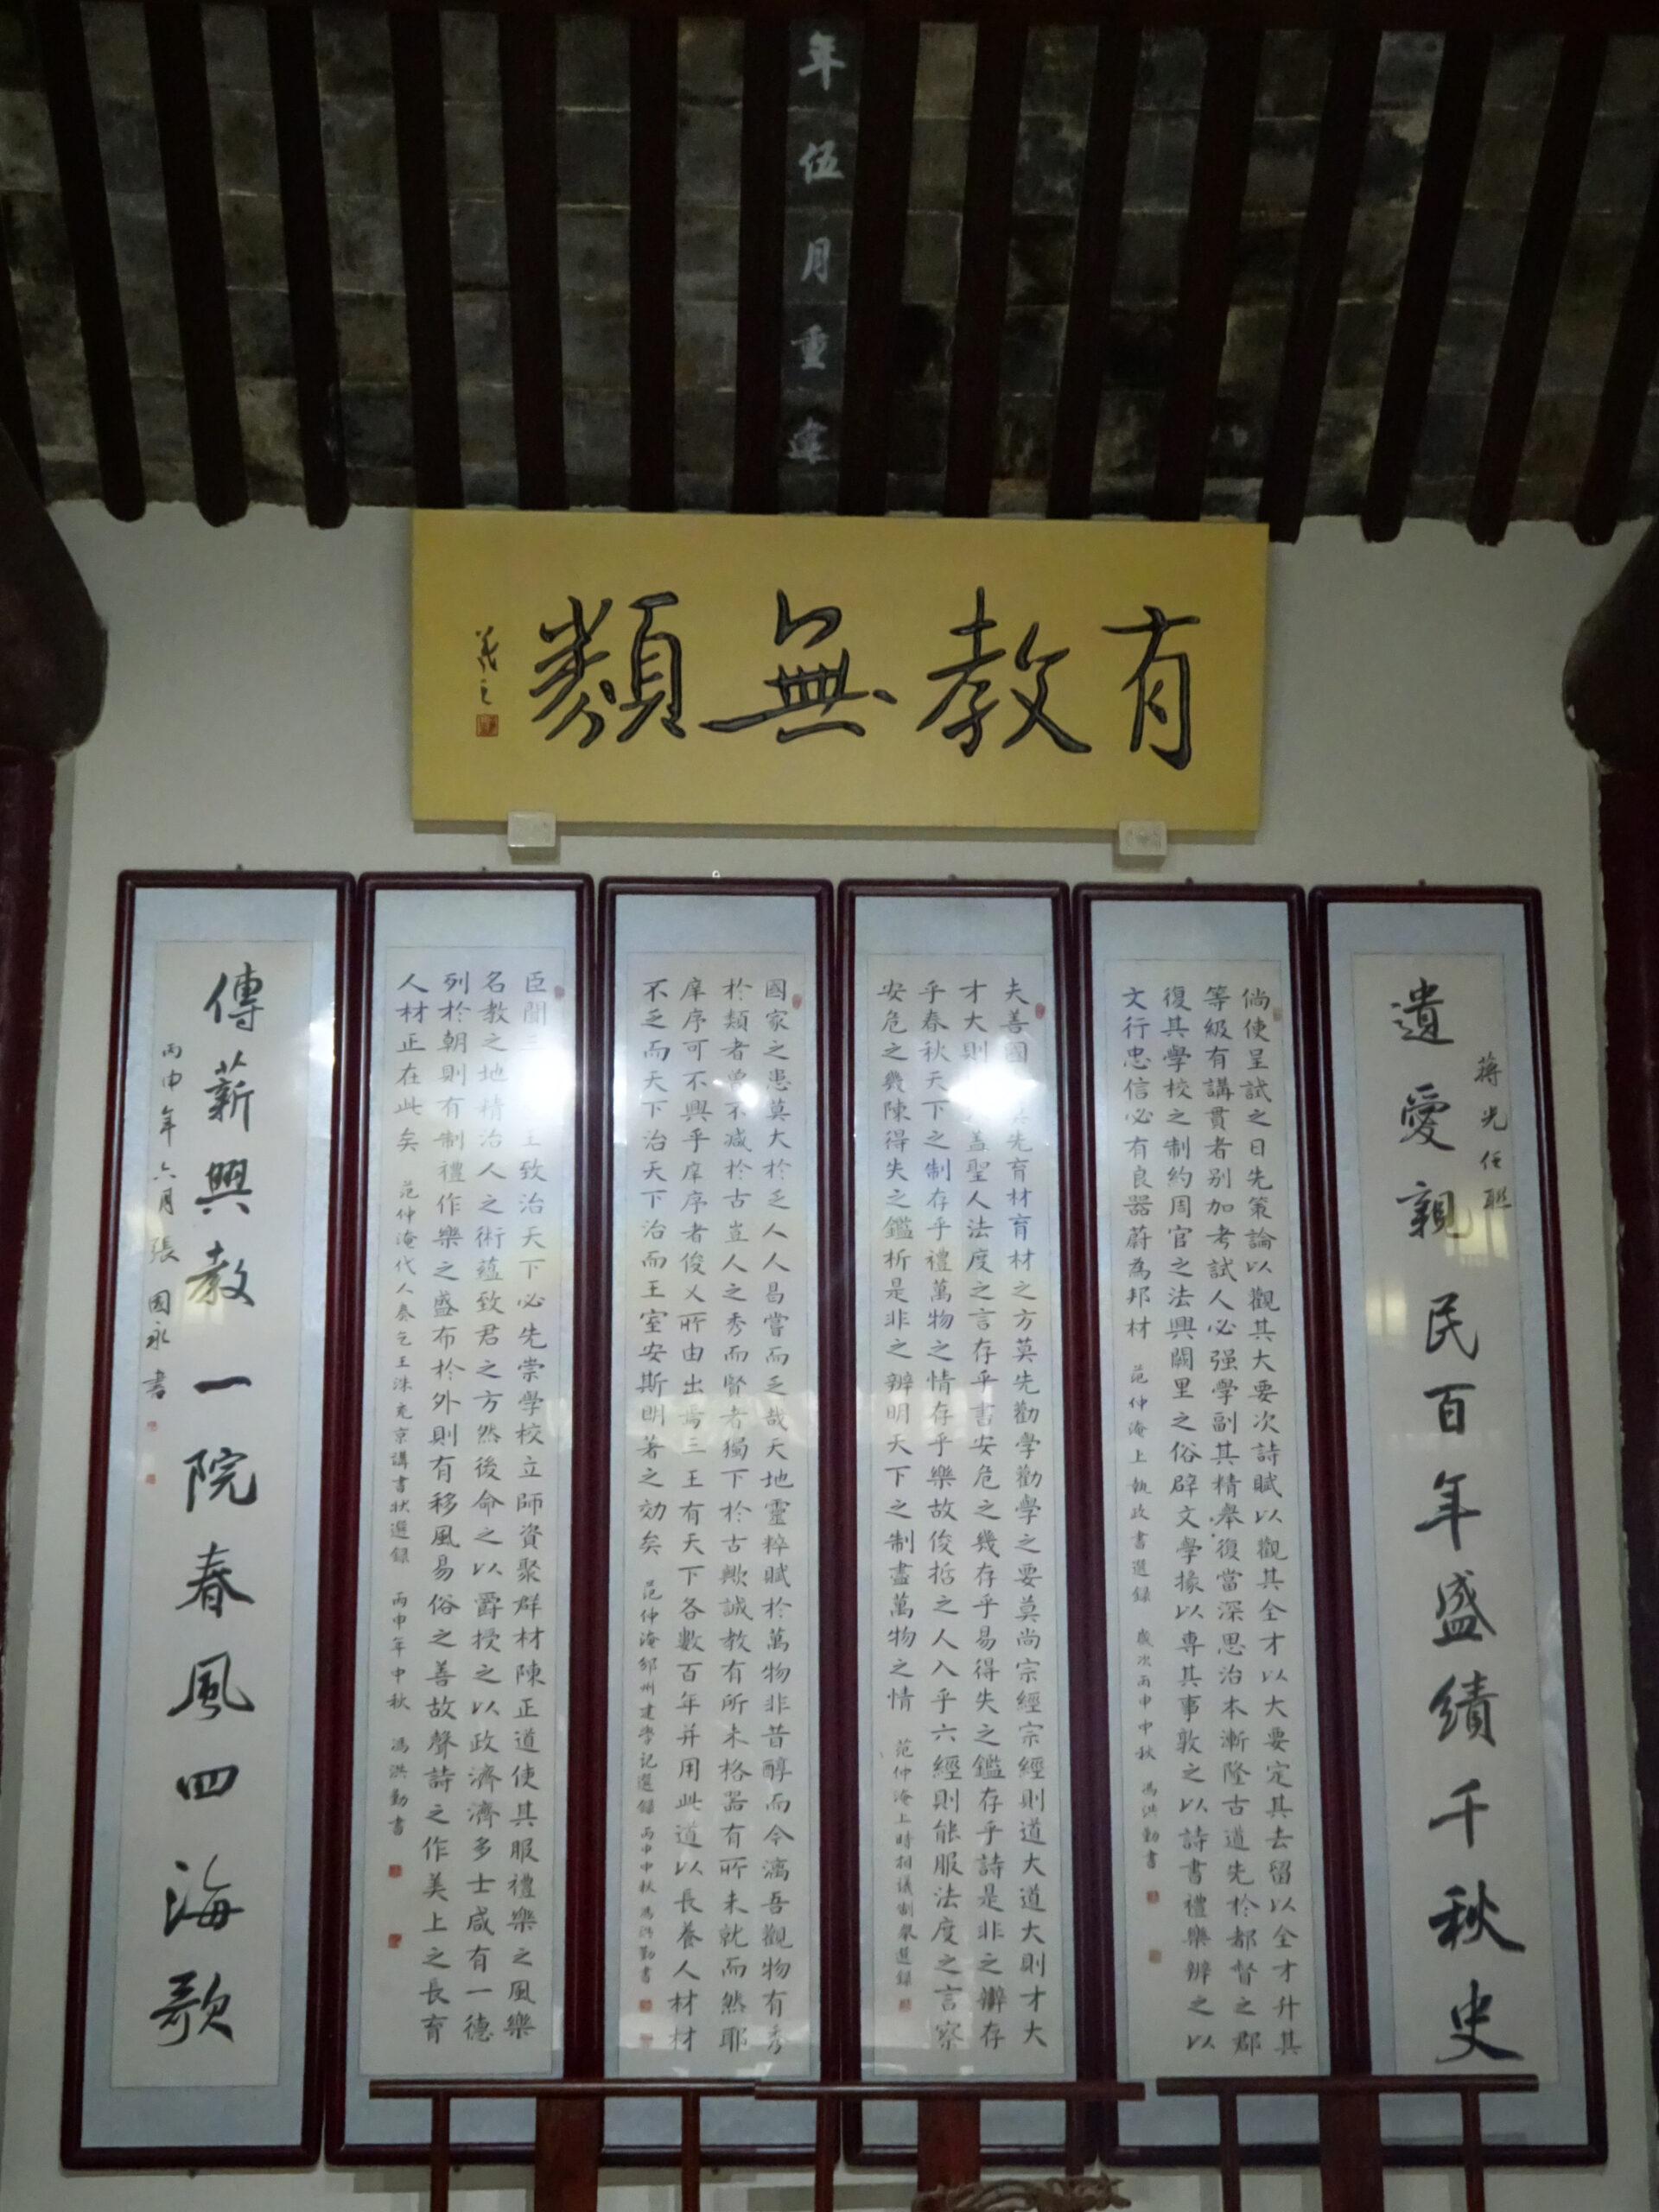 年伍月重建
有教無類
羲之
遺愛親民百年盛績千秋史
蔣光任聯
倘使呈試之日先策論以觀其大要次詩賦以觀其全才以大要定其去留以全才升其
等級有講貫者別加考試人必强學副其精舉復當深思治本漸隆古道先於都督之郡
復其學校之制約周官之法興闕里之俗辟文學掾以專其事敦之以詩書禮樂辨之以
文行忠信必有良器蔚為邦材 范仲淹上執政書選録 歲次丙申中秋 馮洪勤書
夫善國 先育材育材之方莫先勸學勸學之要莫尚宗經宗經則道大道大則才大
才大則 蓋聖人法度之言存乎書安危之幾存乎易得失之鑑存乎詩是非之辯存
乎春秋天下之制存乎禮萬物之情存乎樂故俊哲之人入乎六經則能服法度之言察
安危之幾陳得失之鑑析是非之辨明天下之制盡萬物之情 范仲淹上時相議制舉選録
國家之患莫大於乏人人曷嘗而乏哉天地靈粹賦於萬物非昔醇而今漓吾觀物有秀
於類者曾不減於古豈人之秀而賢者獨下於古歟誠教有所未格器有所未就而然耶
庠序可不興乎庠序者俊乂所由出焉三王有天下各數百年并用此道以長養人材材
不乏而天下治天下治而王室安斯明著之効矣 范仲淹邠州建學記選録 丙申中秋馮洪勤書
臣聞三 王致治天下必先崇學校立師資聚群材陳正道使其服禮樂之風樂
名教之地精治人之術蘊致君之方然後命之以爵授之以政濟濟多士咸有一德
列於朝則有制禮作樂之盛布於外則有移風易俗之善故聲詩之作美上之長育
人材正在此矣 范仲淹代人奏乞王洙充京講書狀選録 丙申年中秋 馮洪勤書
傳薪興教一院春風四海歌
丙申年六月張國永書